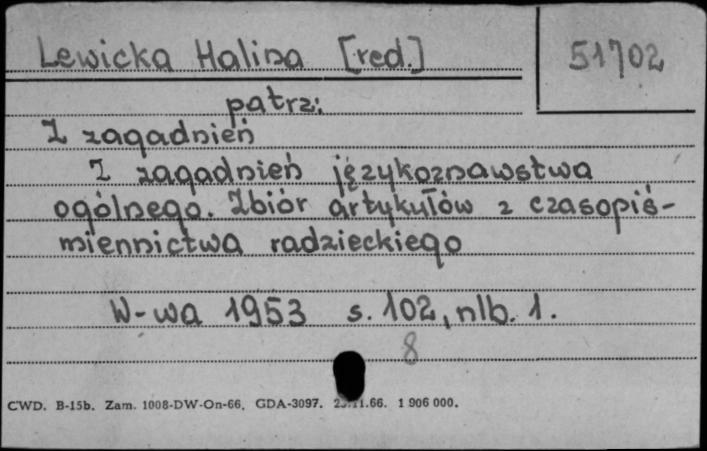 Lewicka Halina [red.]
51702
patrz:
Z zagadnień
Z zagadnień językoznawstwa
ogólnego. Zbiór artykułów z czasopiś-
miennictwa radzieckiego
W-wa 1953 s. 102, nlb. 1.
8
CWD. B-15b. Zam. 1008-DW-On-66. GDA-3097. .66. 1 906 000.